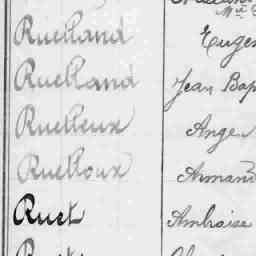 Ruelland Eugen
Ruelland Jean Bap
Ruelleux Ange
Ruelloux Armand
Ruet Ambroise